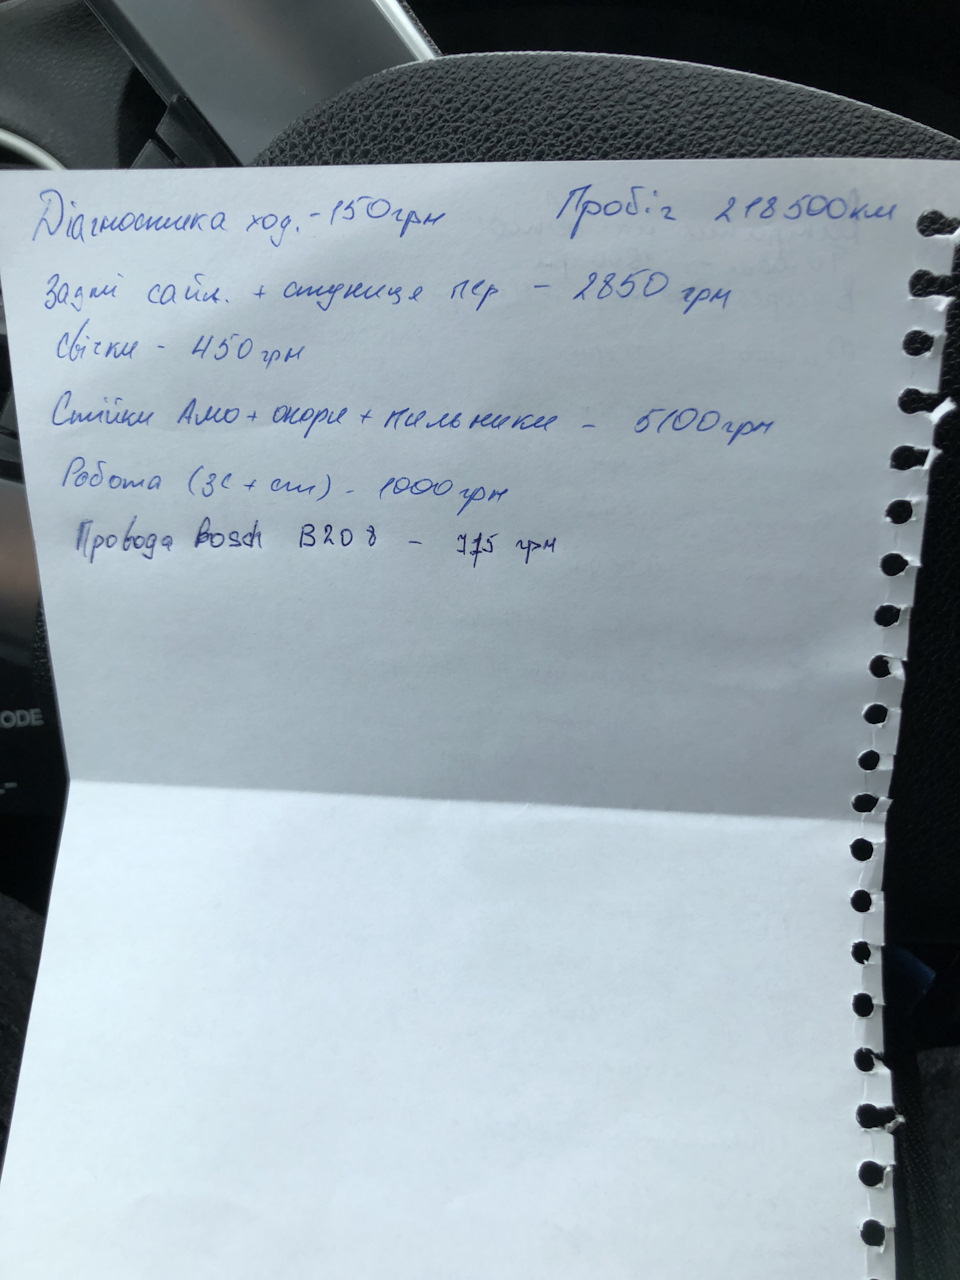 Діагностика ход. - 150 грн Пробіг 218500 км
Задні сайл. + ступиця пер - 2850 грн
Свічки - 450 грн
Стійки Амо + опори + пильники - 5100 грн
Робота (зс + ст) - 1000 грн
Провода Bosch B208 - 775 грн
ODE